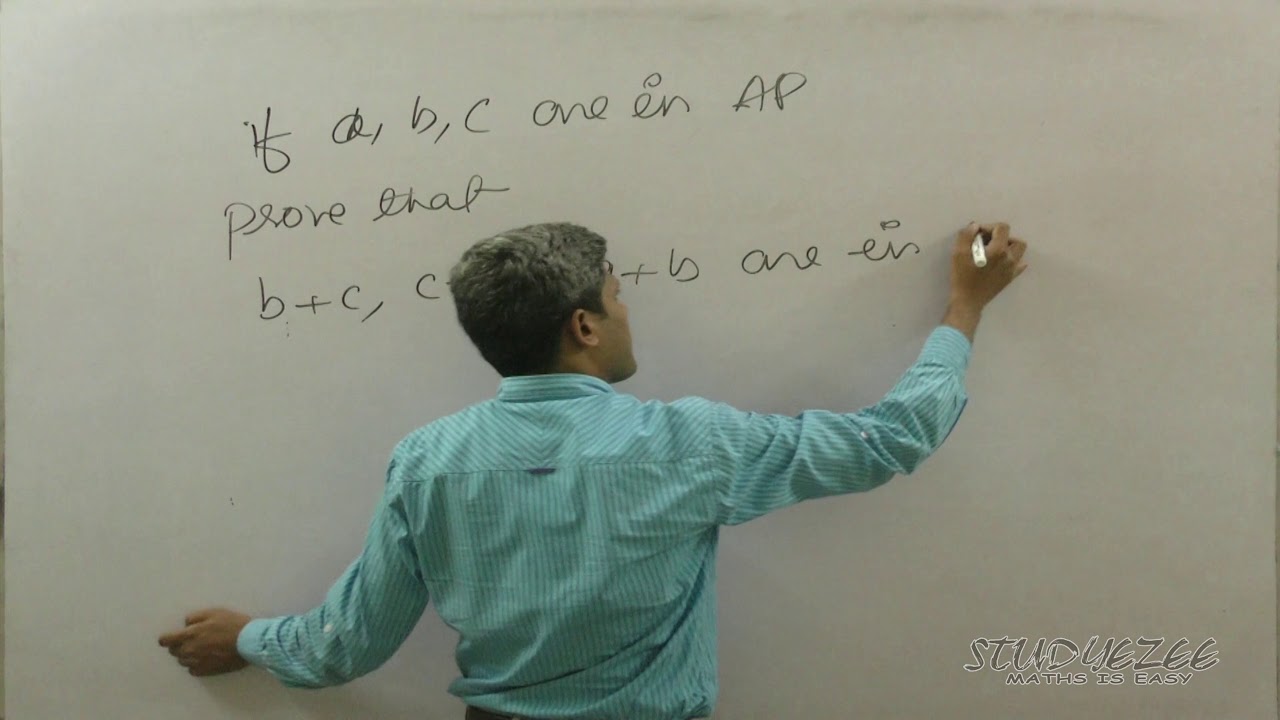 if a, b, c are in AP
prove that
b+c, c +b are in
STUDYEZEE
MATHS IS EASY